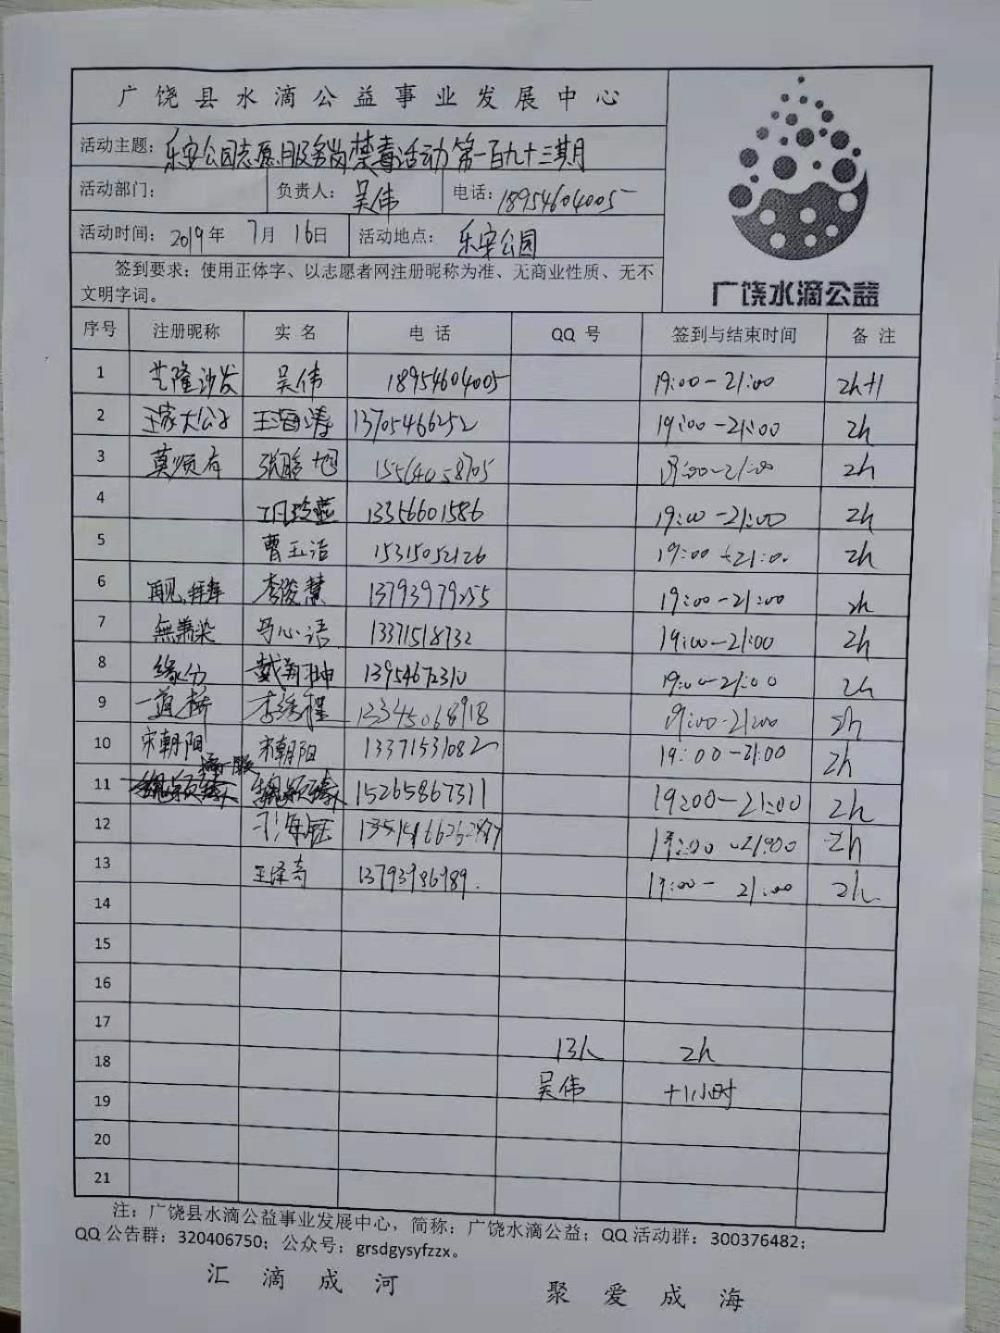 广饶县水滴公益事业发展中心
活动主题：乐安公园志愿服务岗禁毒活动第一百九十三期
活动部门： 负责人：吴伟 电话：18954604005
活动时间：2019年 7月 16日 活动地点：乐安公园
签到要求：使用正体字、以志愿者网注册昵称为准、无商业性质、无不
文明字词。
广饶水滴公益
序号 注册昵称 实名 电话 QQ号 签到与结束时间 备注
1 艺隆沙发 吴伟 18954604005 19:00-21:00 2h+1
2 王家大公子 王海涛 13705466252 19:00-21:00 2h
3 莫须有 张鹏旭 15564058705 19:00-21:00 2h
4 13356601586 19:00-21:00 2h
5 曹玉洁 15315052126 19:00-21:00 2h
6 再见,拜拜 李俊慧 13793979255 19:00-21:00 2h
7 無兼染 马心语 13371518732 19:00-21:00 2h
8 缘分 戴翔坤 19:00-21:00 2h
9 一道桥 李绣程 13345068918 19:00-21:00 2h
10 宋朝阳 宋朝阳 13371531082 19:00-21:00 2h
11 15265867311 19:00-21:00 2h
12 19:00-21:00 2h
13 王泽奇 13793986989. 19:00-21:00 2h
14
15
16
17
18 13人 2h
19 吴伟 +1小时
20
21
注：广饶县水滴公益事业发展中心，简称：广饶水滴公益；QQ活动群：300376482；
QQ公告群：320406750；公众号：grsdgysyfzzx。
汇滴成河 聚爱成海